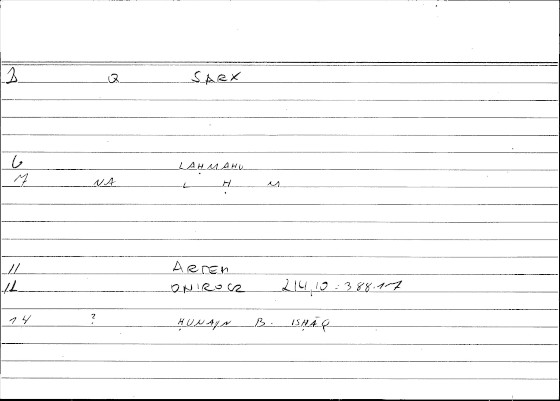 1 Q SARX
6 LAḤMAHU
7 NA L Ḥ M
11 ARTEM
12 ONIROCR 214,10 = 388.17
14 ? ḤUNAYN B. ISḤĀQ